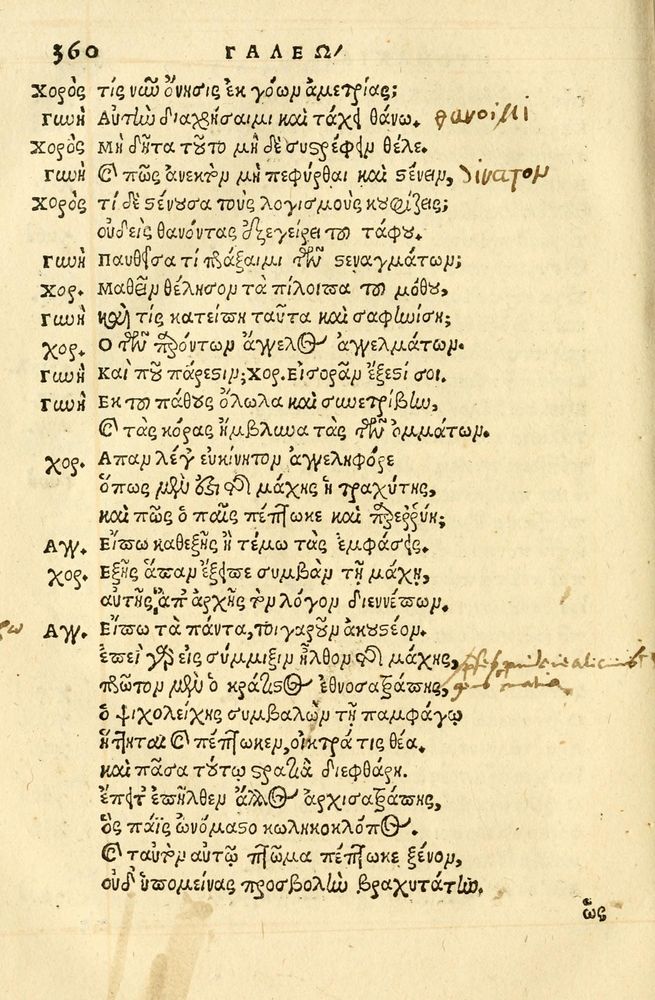 360 ΓΑΛΕΩ/
Χορὸς τίς νωῦ ὄνησις ἐκ γόων ἀμετρίας;
Γωνὴ Αὐτὼ διαχρήσαιμι καὶ τάχει θάνω. θανοίμι
Χορὸς Μὴ δῆτα τοῦτο μὴ δὲ συστρέφειν θέλε.
Γωνὴ Καὶ πῶς ἀνεκτὸν μὴ πεφύρθαι καὶ στένειν,
Χορὸς τί δὲ στένουσα τοὺς λογισμοὺς κουφίζεις;
οὐδεὶς θανόντας ἐξεγείρει τοῦ τάφου.
Γωνὴ Παυθεῖσα τί πράξαιμι τῶν στεναγμάτων;
Χορ. Μαθεῖν θέλησον τὰ πίλοιπα τοῦ μόθου,
Γωνὴ καὶ τίς κατείπη ταῦτα καὶ σαφωνίση;
χορ. Ο τῶν πρόντων ἄγγελος ἀγγελμάτων.
Γωνὴ Καὶ ποῦ πάρεστιν; Χορ. Εἰσορᾶν ἔξεστί σοι.
Γωνὴ Εκ τοῦ πάθους ὄλωλα καὶ συνετρίβην,
Καὶ τὰς κόρας ἤμβλωα τὰς τῶν ὀμμάτων.
χορ. Απαν λέγε εὐκίνητον ἀγγεληφόρε
ὅπως μὲν ἔστι τῆς μάχης ἡ τραχύτης,
καὶ πῶς ὁ παῖς πέπτωκε καὶ προερρύη;
Αγγ. Εἴπω καθεξῆς ἢ τέμω τὰς ἐμφάσεις.
χορ. Εξῆς ἅπαν ἔξειπε συμβὰν τῇ μάχῃ,
αὐτῆς ἀπ' ἀρχῆς τὸν λόγον διεννέπων.
Αγγ. Εἴπω τὰ πάντα, τοιγαροῦν ἀκουστέον.
ἐπεὶ γὰρ εἰς σύμμιξιν ἦλθον τῆς μάχης,
πρῶτον μὲν ὁ κράτιστος ἐθνοσατράπης,
ὁ ψιχολείχης συμβαλὼν τῇ παμφάγῳ
ἥττηται καὶ πέπτωκεν, οἰκτρά τις θέα.
καὶ πᾶσα τούτῳ στρατιὰ διεφθάρη.
ἔπειτ' ἐπῆλθεν ἄλλος ἀρχισατράπης,
ὃς πάϊς ὠνόμαστο κωληκοκλόπος.
Καὶ ταυτὸν αὐτῷ πτῶμα πέπτωκε ξένον,
οὐδ' ὑπομείνας προσβολὼ βραχυτάτην.
ὡς